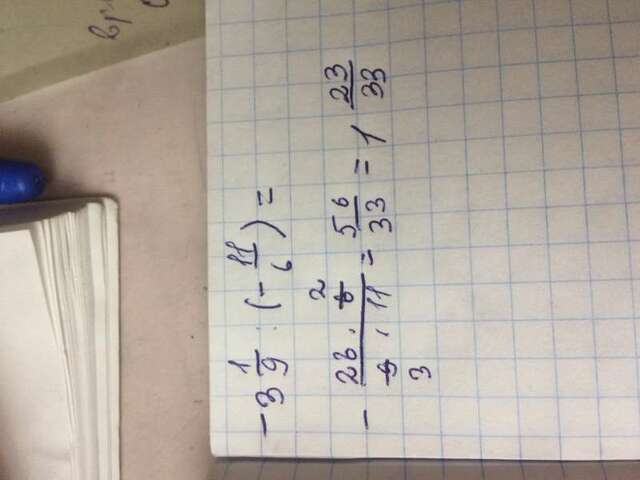 вр
-3 1/9 : (- 11/6) =
- 28 · 6 2 / 9 · 11 3 = 56/33 = 1 23/33